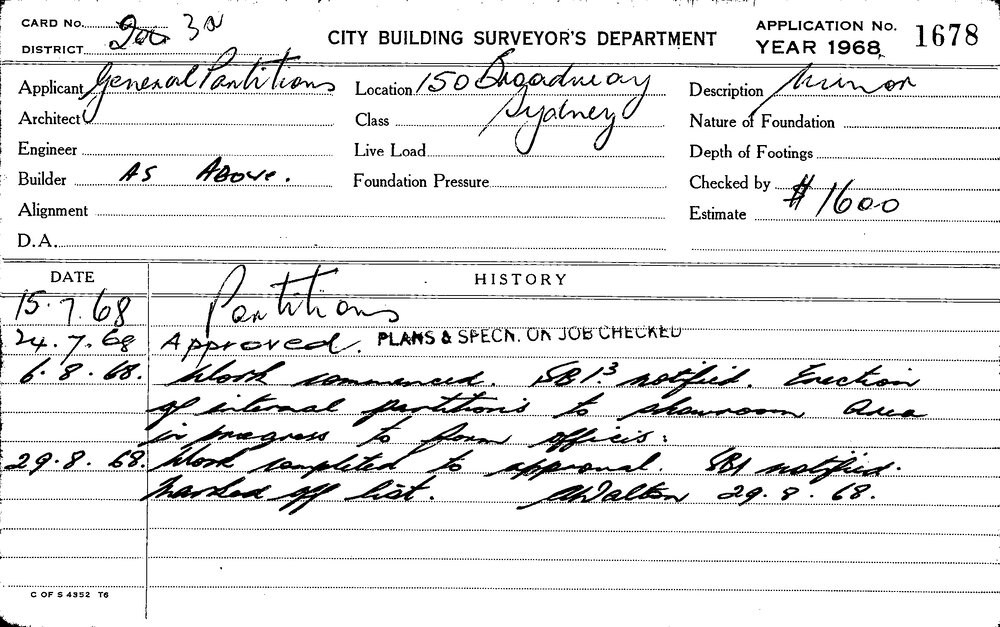 CARD No. 3a
DISTRICT
CITY BUILDING SURVEYOR'S DEPARTMENT
APPLICATION No. 1678
YEAR 1968
Applicant General Partitions
Location 150 Broadway
Sydney
Description Minor
Architect
Class
Nature of Foundation
Engineer
Live Load
Depth of Footings
Builder AS ABOVE.
Foundation Pressure
Checked by
Alignment
Estimate $1600
D.A.
DATE
HISTORY
15.7.68 Partitions
24.7.68 Approved. PLANS & SPECN. ON JOB CHECKED
6.8.68. Work commenced. notified. Erection
of internal partitions to showroom Area
in progress to form offices.
29.8.68. Work completed to approval. notified.
Marked off list. Walton 29.8.68.
C OF S 4352 T6